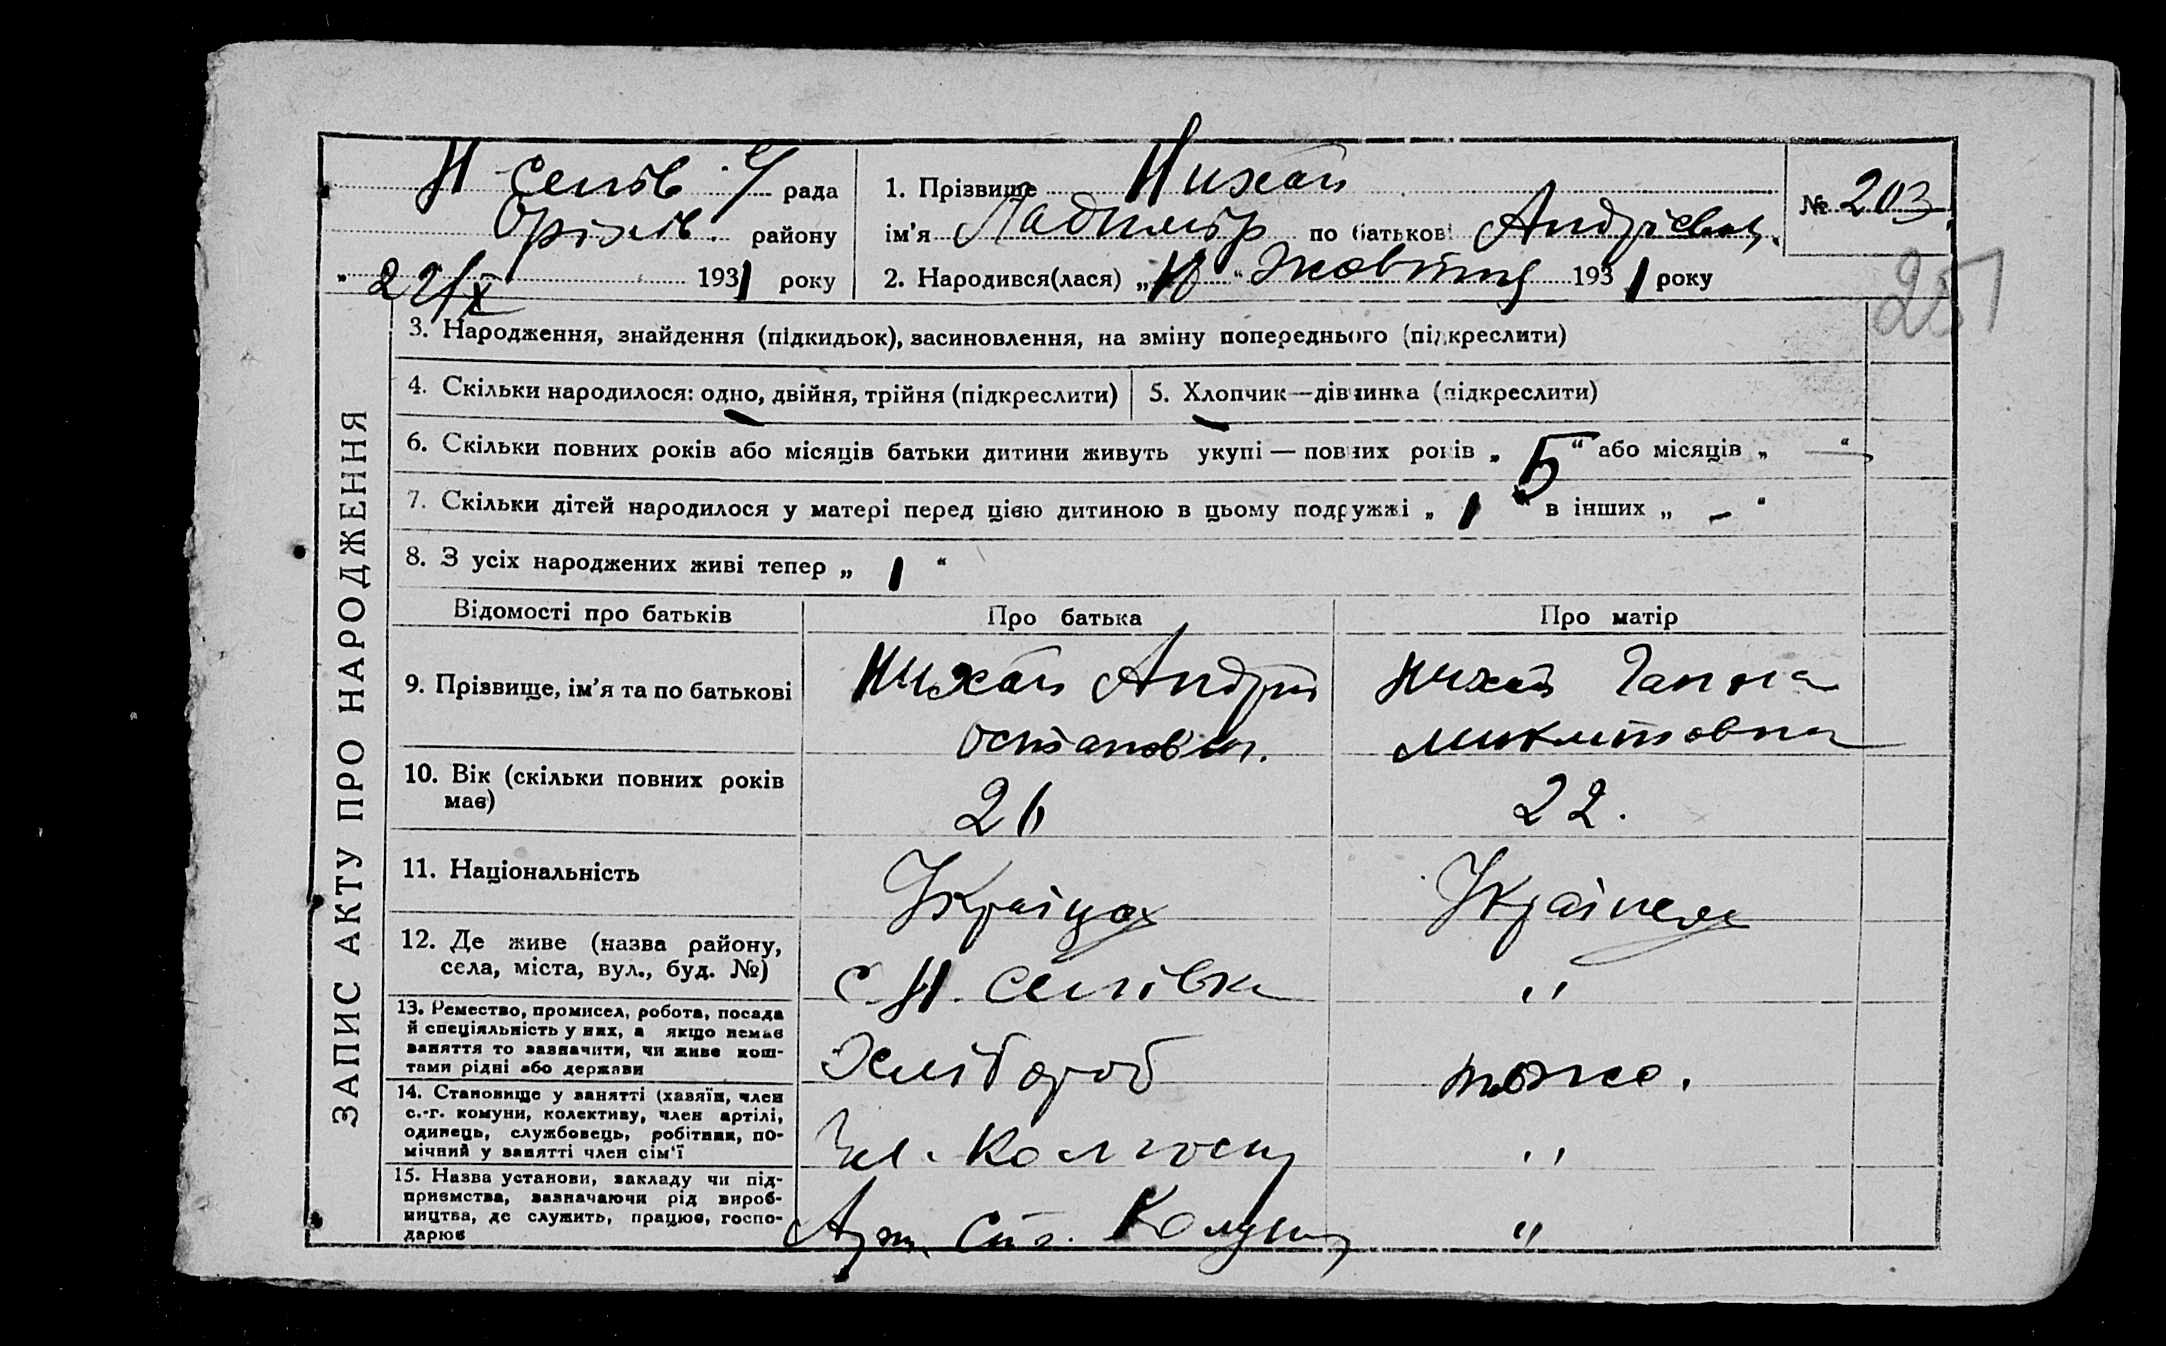 Н Селів. с/ рада
Оріхів. району
„ 22/X 1931 року
1. Прізвище Нихай
ім'я Ладимир по батькові Андрієвич
2. Народився(лася) „ “ Жовтня 1931 року
№ 203
251
ЗАПИС АКТУ ПРО НАРОДЖЕННЯ
3. Народження, знайдення (підкидьок), засиновлення, на зміну попереднього (підкреслити)
4. Скільки народилося: одно, двійня, трійня (підкреслити) 5. Хлопчик—дівчинка (підкреслити)
6. Скільки повних років або місяців батьки дитини живуть укупі — повних років „ 5 “ або місяців „ — “
7. Скільки дітей народилося у матері перед цією дитиною в цьому подружжі „ 1 “ в інших „ – “
8. З усіх народжених живі тепер „ 1 “
Відомості про батьків Про батька Про матір
9. Прізвище, ім'я та по батькові Нихай Андрій Нихай Ганна
Остапович. Микитовна
10. Вік (скільки повних років
має) 26 22.
11. Національність Українец Українка
12. Де живе (назва району,
села, міста, вул., буд. №) С. Н. Селівка "
13. Ремество, промисел, робота, посада
й спеціяльність у них, а якщо немає
заняття то зазначити, чи живе кош-
тами рідні або держави Хлібороб тоже.
14. Становище у занятті (хазяїн, член
с.-г. комуни, колективу, член артілі,
одинець, службовець, робітник, по-
мічний у занятті член сім'ї Чл. колгоспу "
15. Назва установи, закладу чи під-
приємства, зазначаючи рід вироб-
ництва, де служить, працює, госпо-
дарює Арт. "